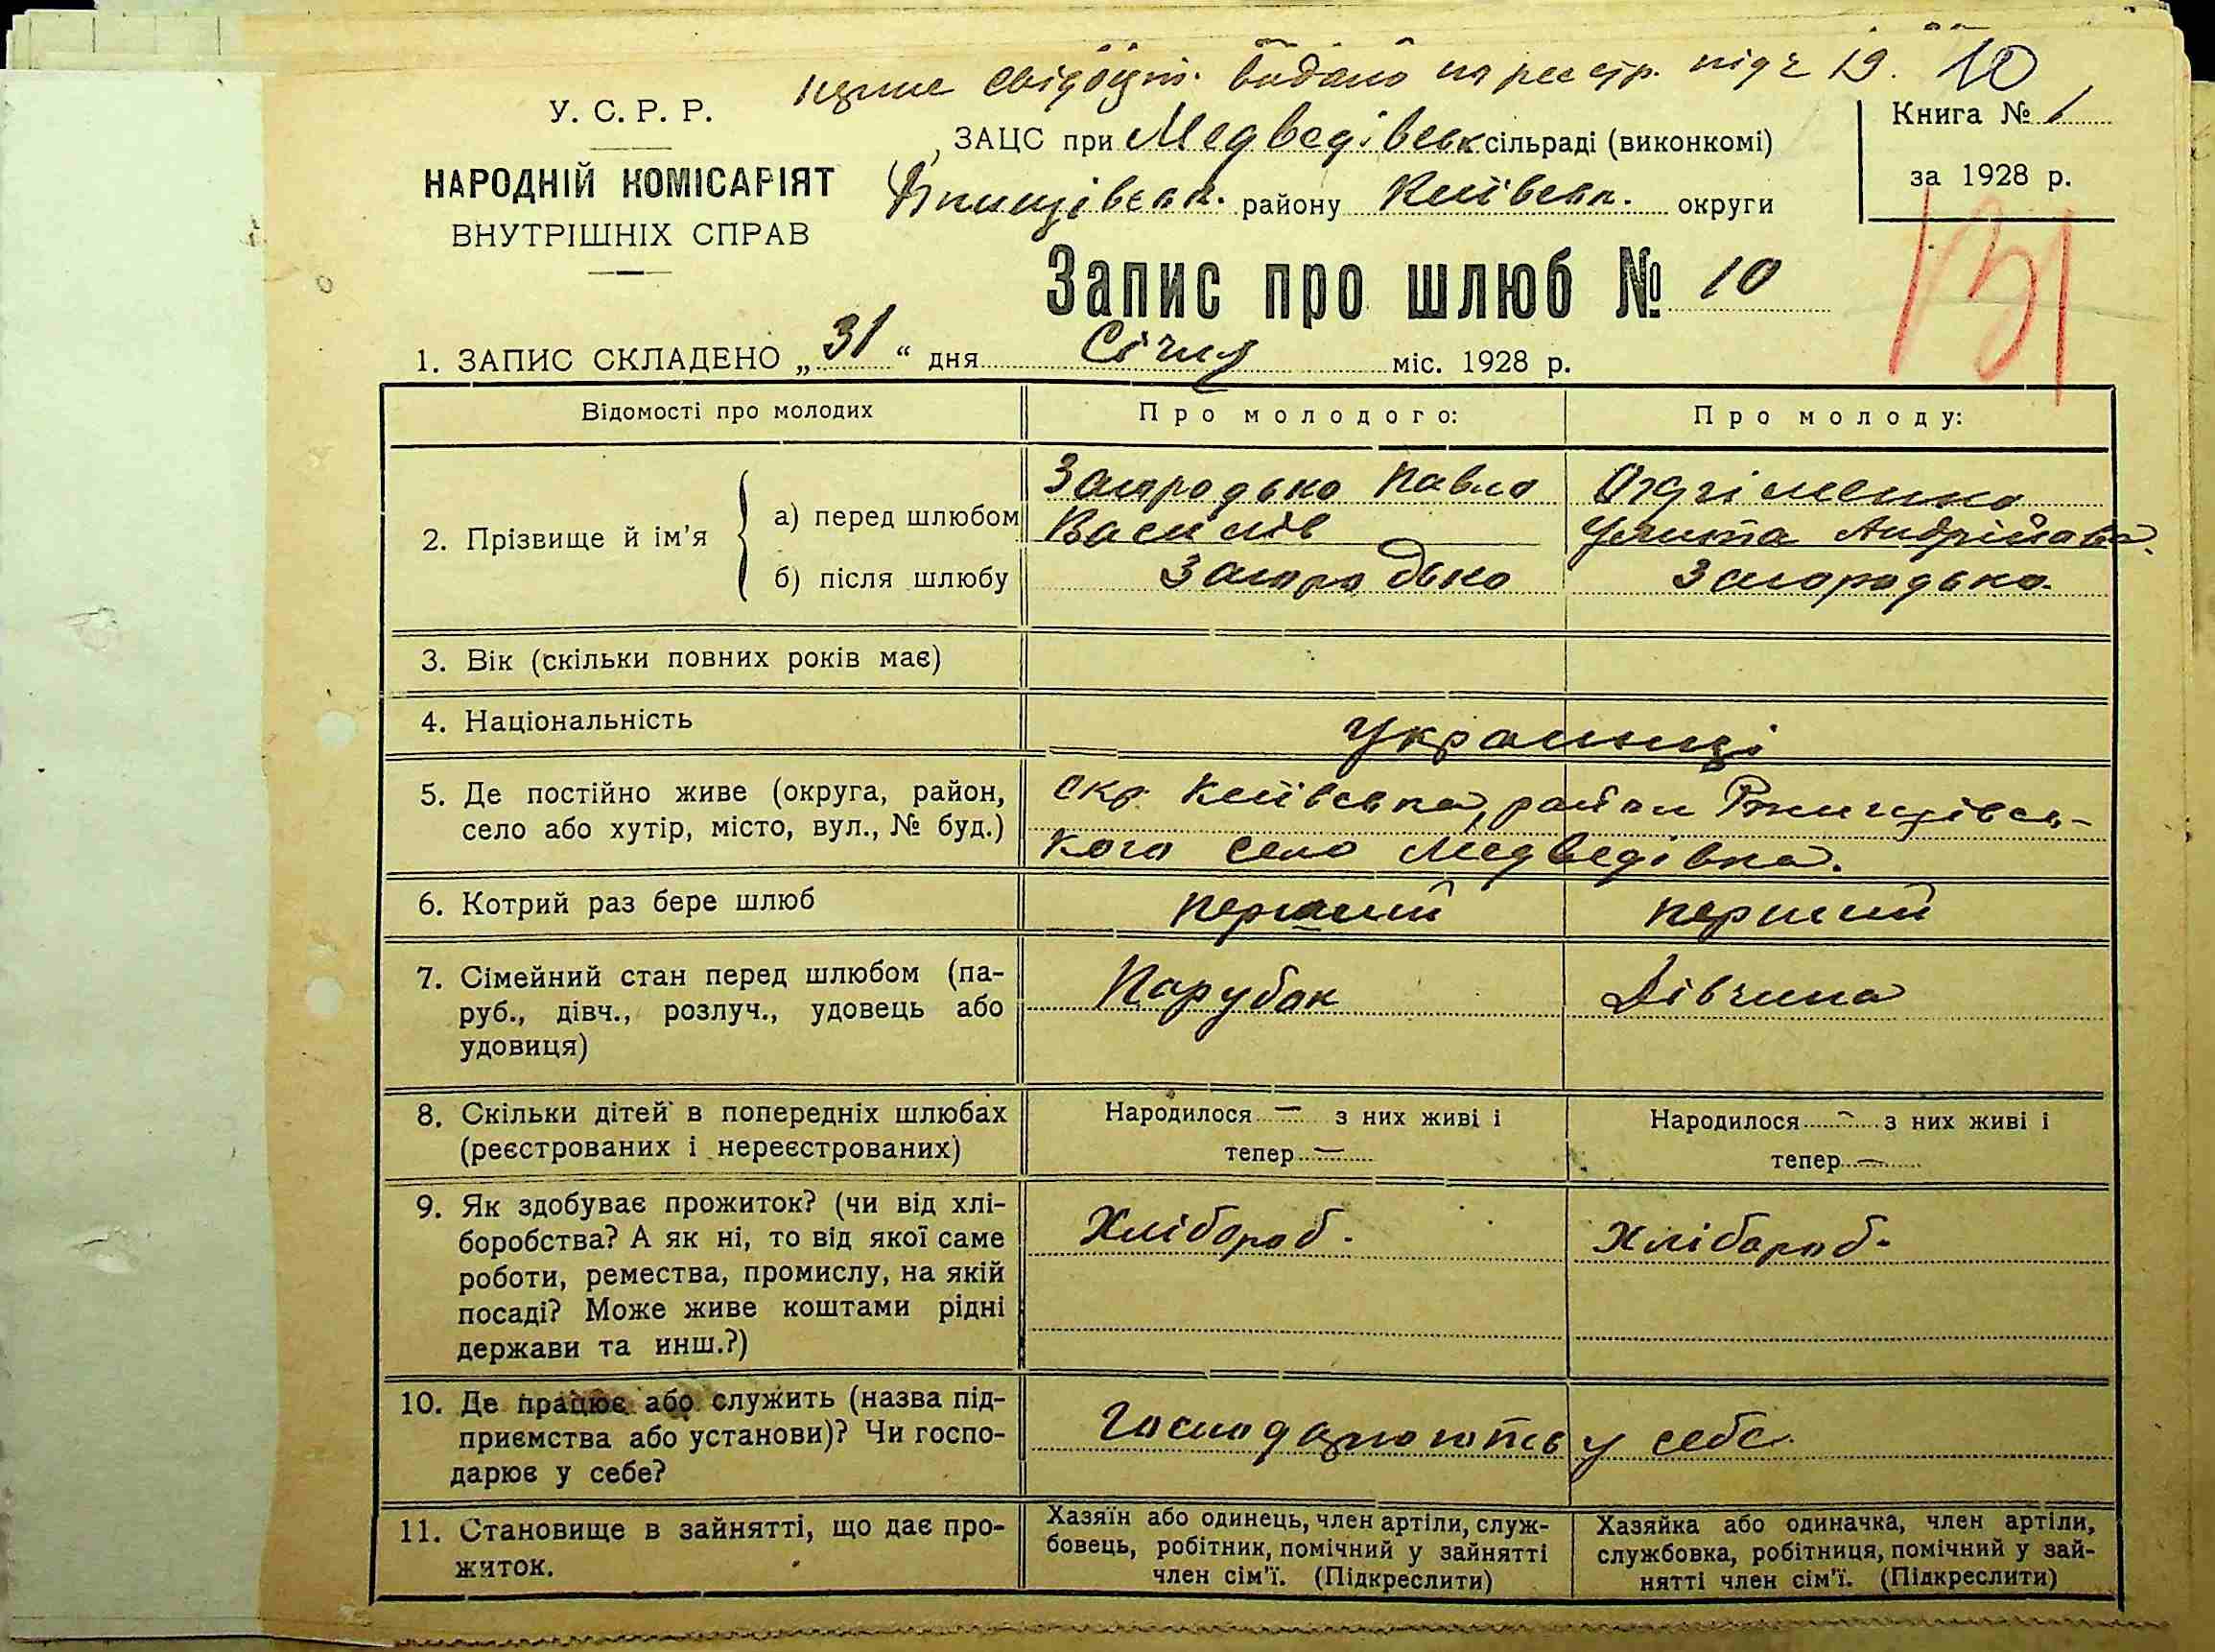 видано на реєстр. під ч 19. 10
У. С. Р. Р.
НАРОДНІЙ КОМІСАРІЯТ
ВНУТРІШНІХ СПРАВ
ЗАЦС при Медведівськ сільраді (виконкомі)
району Київськ. округи
Книга № 1
за 1928 р.
131
Запис про шлюб № 10
1. ЗАПИС СКЛАДЕНО „31“ дня Січня міс. 1928 р.
Відомості про молодих
Про молодого:
Про молоду:
2. Прізвище й ім'я
а) перед шлюбом
Загородько Павло
Василів
Улита Андріївна
б) після шлюбу
Загородько
Загородько
3. Вік (скільки повних років має)
4. Національність
Українці
5. Де постійно живе (округа, район,
село або хутір, місто, вул., № буд.)
окр. Київська, район Ржищівсь-
кого село Медведівка.
6. Котрий раз бере шлюб
перший
перший
7. Сімейний стан перед шлюбом (па-
руб., дівч., розлуч., удовець або
удовиця)
Парубок
Дівчина
8. Скільки дітей в попередніх шлюбах
(реєстрованих і нереєстрованих)
Народилося — з них живі і
тепер —
Народилося — з них живі і
тепер —
9. Як здобуває прожиток? (чи від хлі-
боробства? А як ні, то від якої саме
роботи, ремества, промислу, на якій
посаді? Може живе коштами рідні
держави та инш.?)
Хлібороб.
Хлібороб.
10. Де працює або служить (назва під-
приємства або установи)? Чи госпо-
дарює у себе?
Господарюють у себе
11. Становище в зайнятті, що дає про-
житок.
Хазяїн або одинець, член артіли, служ-
бовець, робітник, помічний у зайнятті
член сім'ї. (Підкреслити)
Хазяйка або одиначка, член артіли,
службовка, робітниця, помічний у зай-
нятті член сім'ї. (Підкреслити)